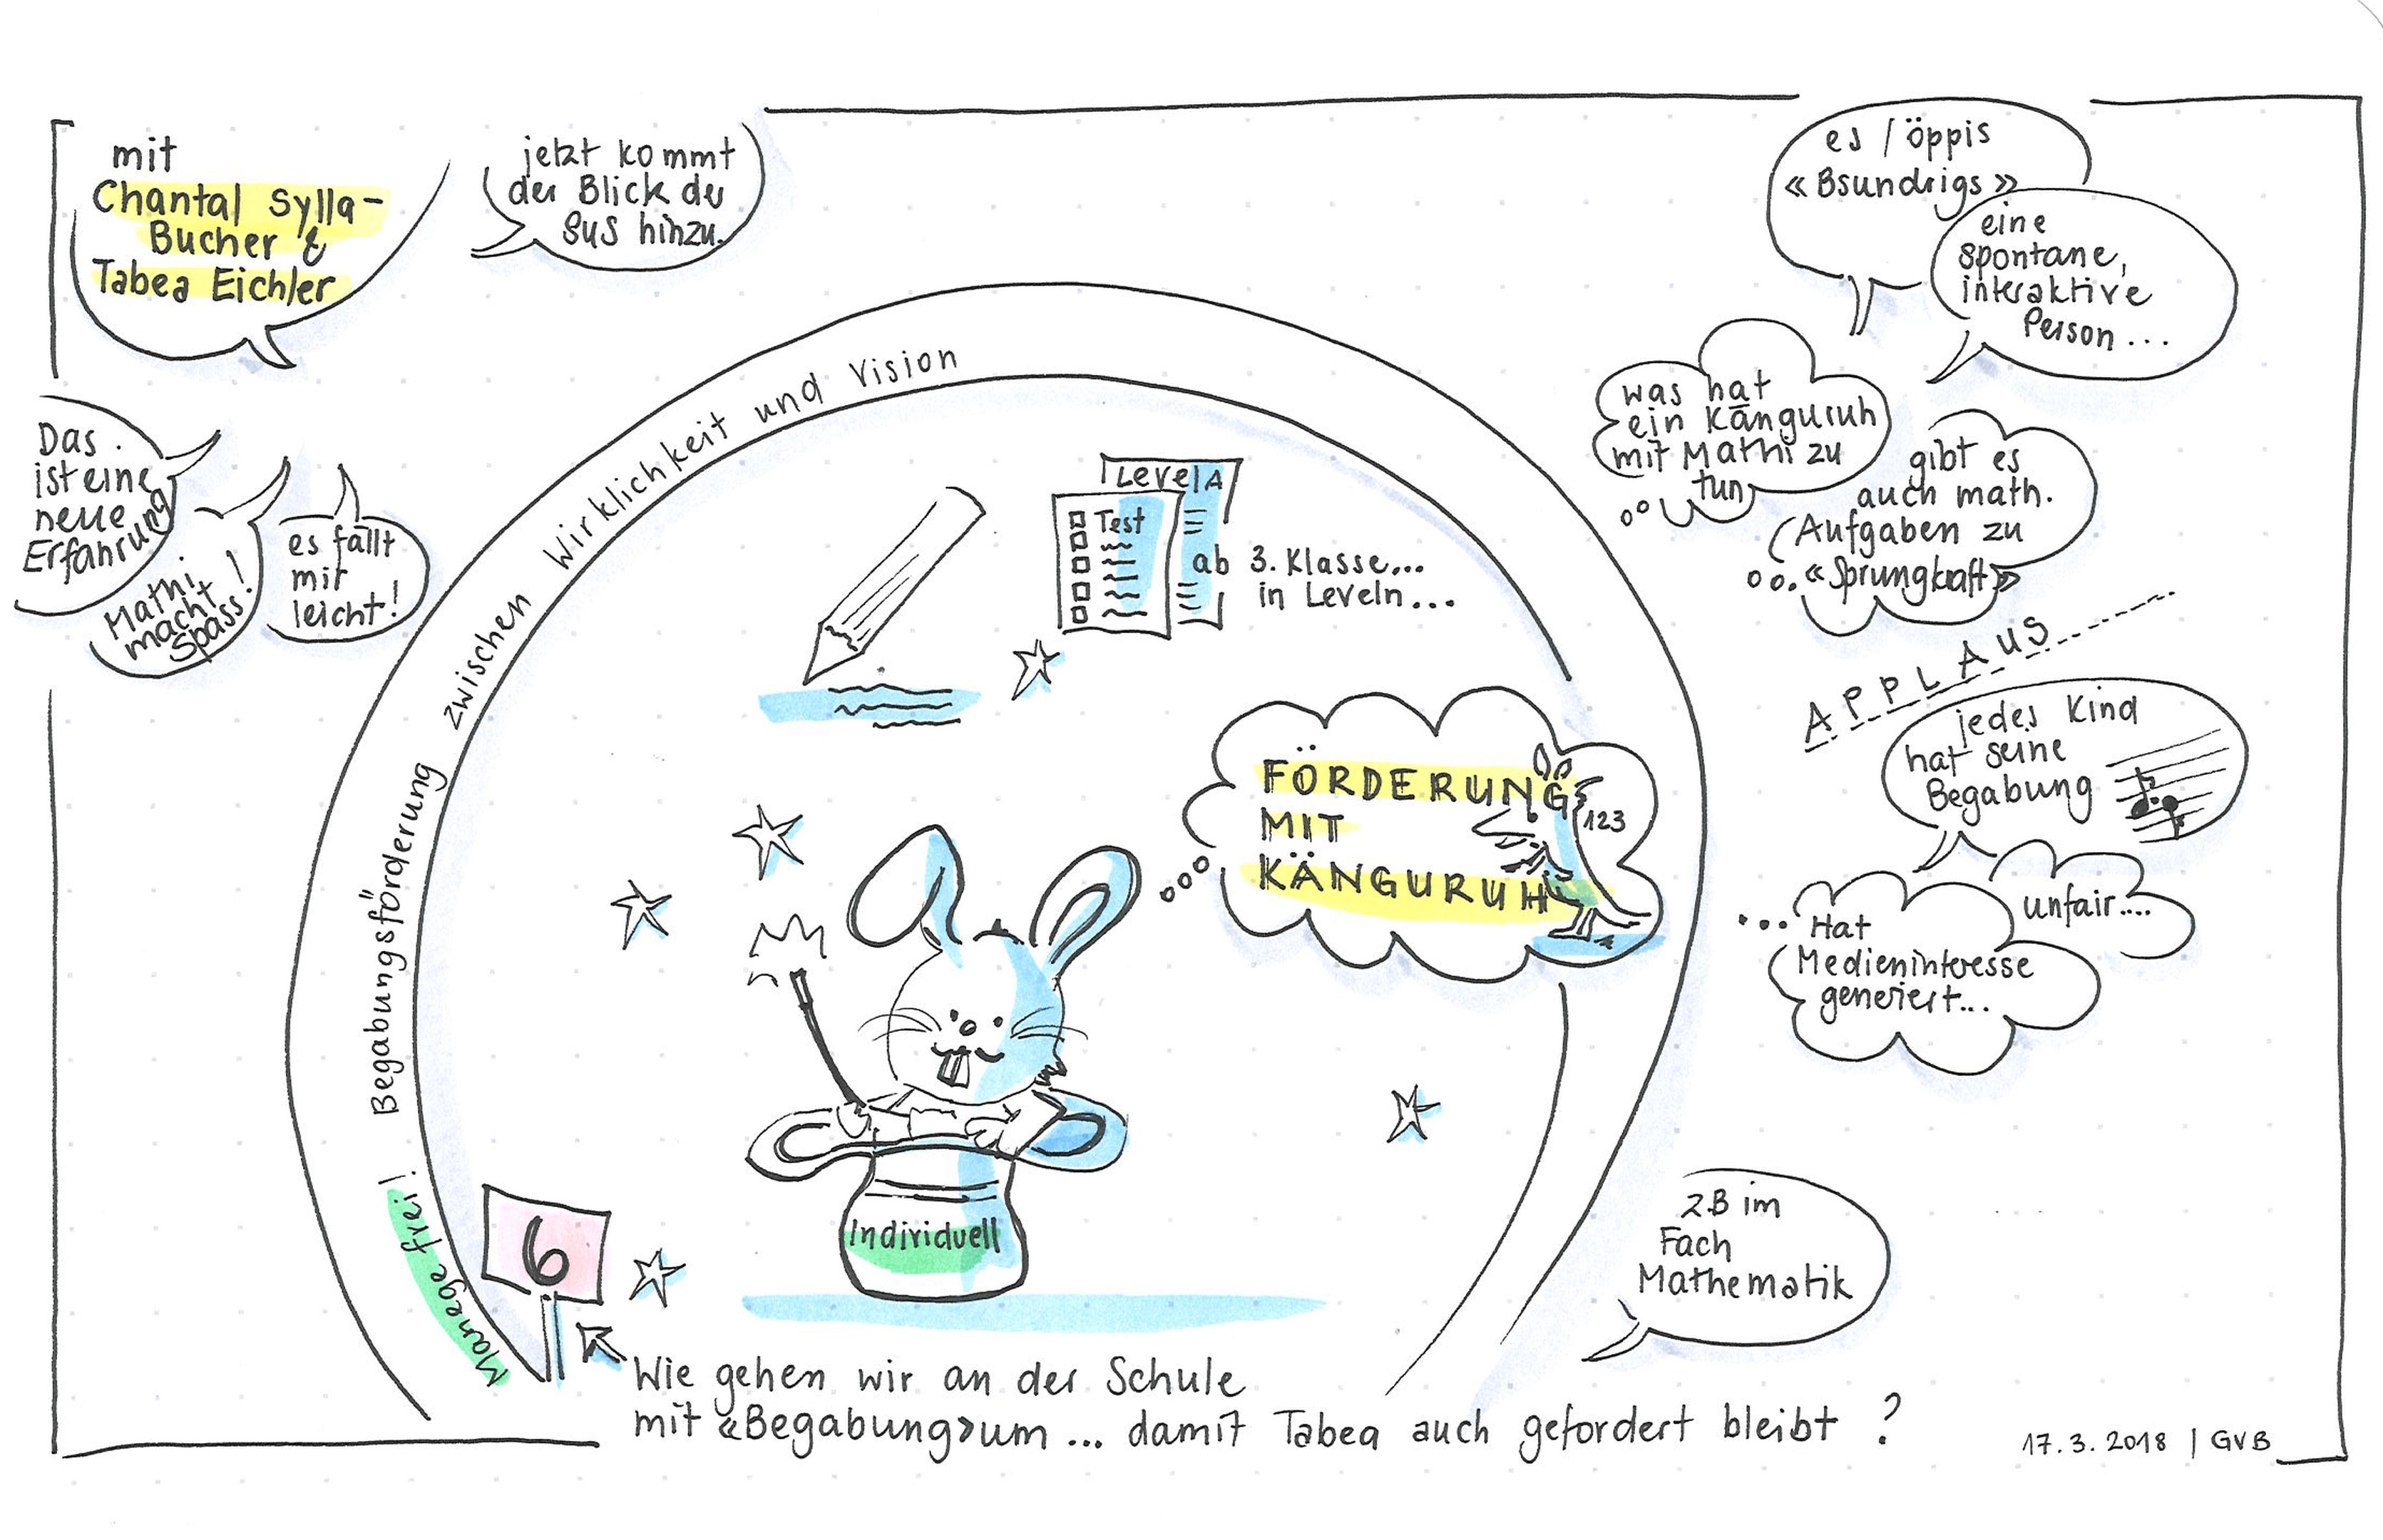 mit
Chantal Sylla-
Bucher &
Tabea Eichler
jetzt kommt
der Blick der
SuS hinzu.
Das
ist eine
neue
Erfahrung
Mathi
macht
Spass!
es fällt
mir
leicht!
Manege frei! Begabungsförderung zwischen Wirklichkeit und Vision
Level A
Test
ab 3. Klasse...
in Leveln...
FÖRDERUNG
MIT
KÄNGURUH
123
Individuell
6
es / öppis
«Bsundrigs»
eine
spontane,
interaktive
Person...
was hat
ein Känguruh
mit Mathi zu
tun
gibt es
auch math.
Aufgaben zu
«Sprungkraft»
APPLAUS
jedes Kind
hat seine
Begabung
unfair....
Hat
Medieninteresse
generiert...
zB im
Fach
Mathematik
Wie gehen wir an der Schule
mit «Begabung» um ... damit Tabea auch gefordert bleibt ?
17.3.2018 | GvB